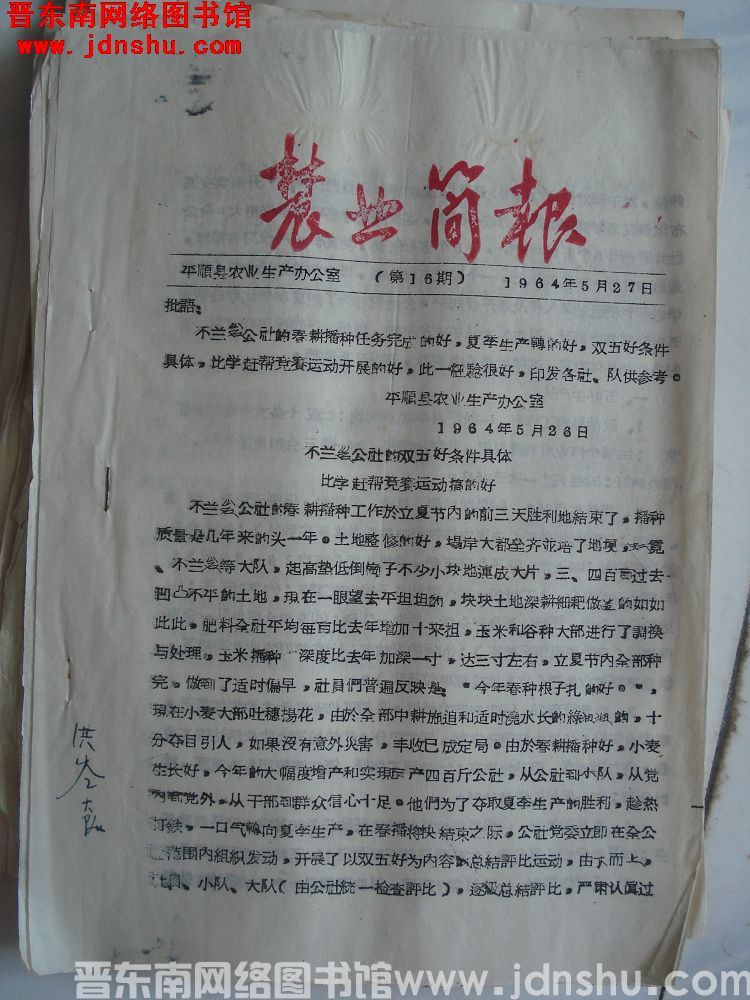 晋东南网络图书馆
www.jdnshu.com
农业简报
平順县农业生产办公室 (第16期) 1964年5月27日
批語:
不兰岩公社的春耕播种任务完成的好，夏季生产轉的好，双五好条件
具体，比学赶帮竞赛运动开展的好，此一經驗很好，印发各社、队供参考。
平順县农业生产办公室
1964年5月26日
不兰岩公社的双五好条件具体
比学赶帮竞赛运动搞的好
不兰岩公社的春耕播种工作於立夏节内的前三天胜利地結束了，播种
质量是几年来的头一年。土地整修的好，塌岸大都垒齐並培了地埂，
、不兰岩等大队，起高墊低倒堰子不少小块地連成大片，三、四百亩过去
凹凸不平的土地，現在一眼望去平坦坦的，块块土地深耕細耙做差的如如
此此。肥料全社平均每亩比去年增加十来担，玉米和谷种大部进行了調换
与处理，玉米播种 深度比去年加深一寸，达三寸左右，立夏节内全部种
完，做到了适时偏早，社員們普遍反映是："今年春种根子扎的好。"，
現在小麦大部吐穗揚花，由於全部中耕施追和适时澆水长的綠 的，十
分夺目引人，如果沒有意外災害，丰收已成定局。由於春耕播种好，小麦
生长好，今年的大幅度增产和实現亩产四百斤公社，从公社到小队，从党
内到党外，从干部到群众信心十足。他們为了夺取夏季生产的胜利，趁热
打鉄，一口气轉向夏季生产，在春播将快結束之际，公社党委立即在全公
社范围内組织发动，开展了以双五好为内容的总結評比运动，由下而上，
社員、小队、大队(由公社統一检查評比)，逐級总結評比，严肃认真过
洪岭大队
晋东南网络图书馆www.jdnshu.com